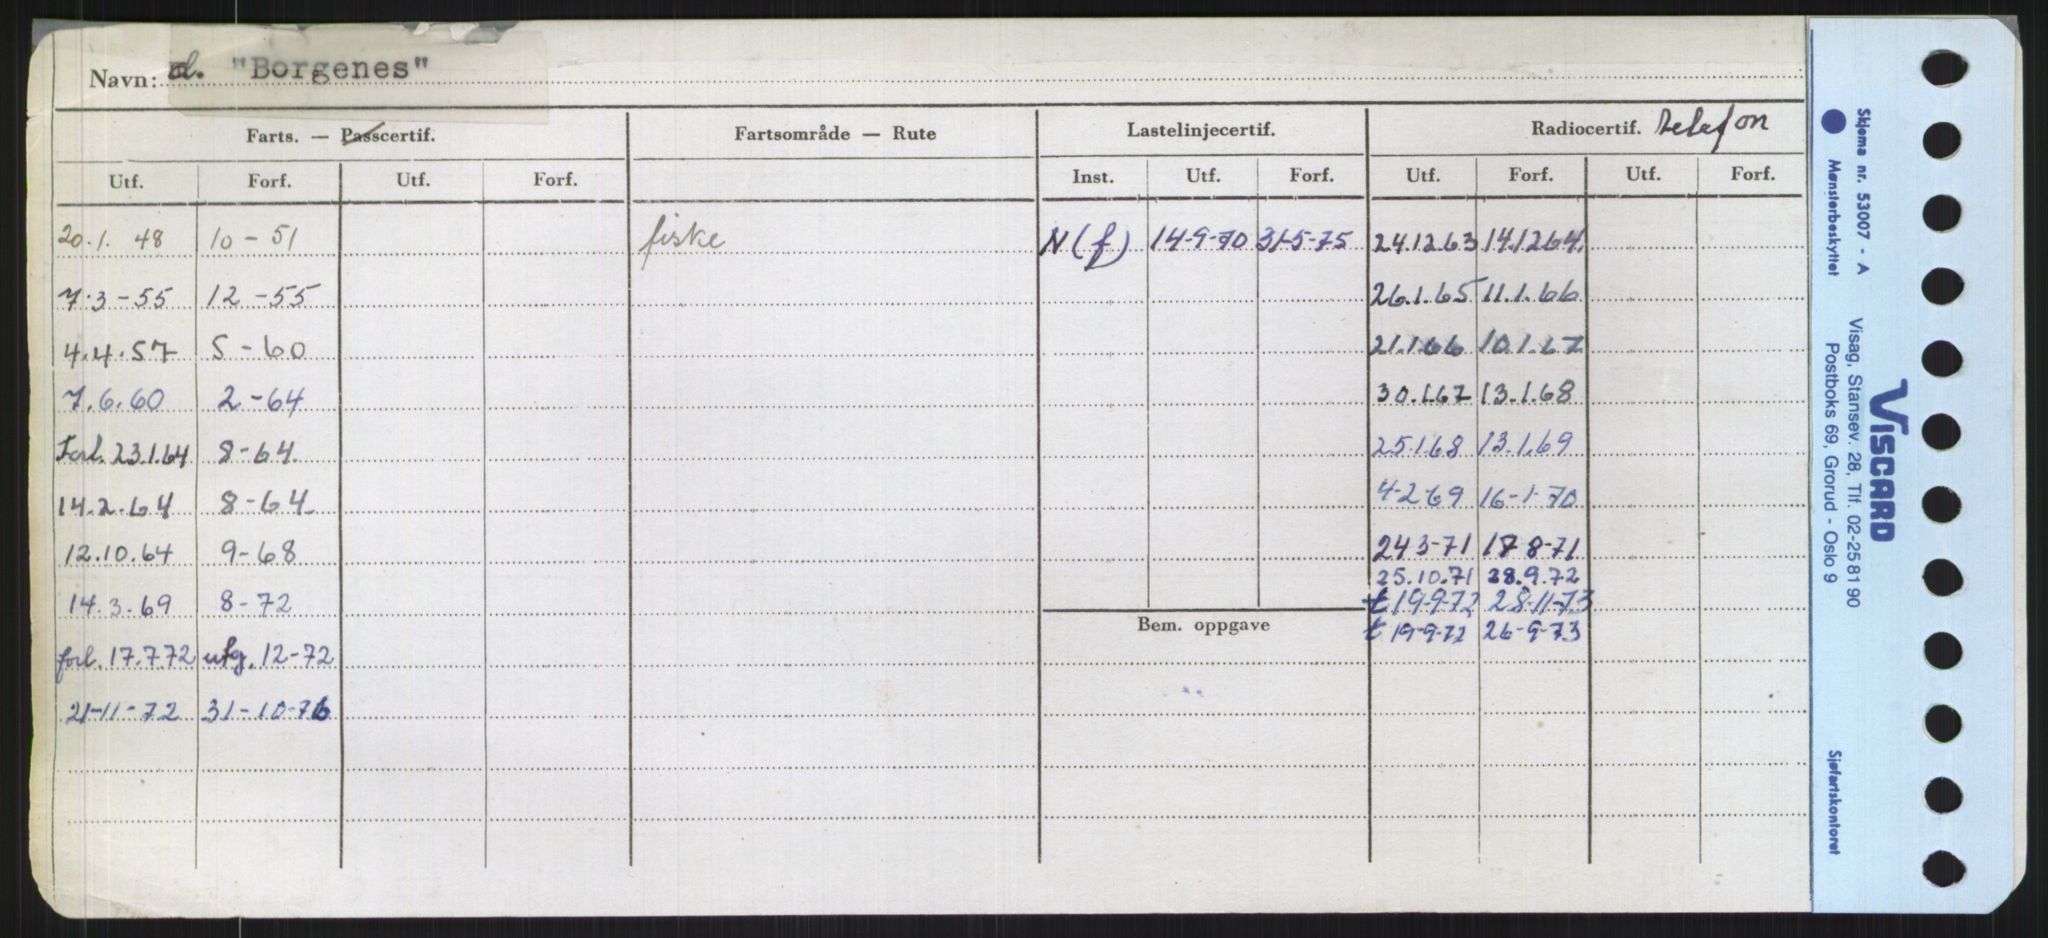 Navn: d. "Borgenes"
Farts. — Passcertif. Fartsområde — Rute Lastelinjecertif. Radiocertif. Telefon
Utf. Forf. Utf. Forf. Inst. Utf. Forf. Utf. Forf. Utf. Forf.
20.1. 48 10-51 fiske N (f) 14-9-70 31-5-75 24.12.63 14.12.64.
7.3-55 12-55 26.1.65 11.1.66
4.4.57 5-60 21.1.66 10.1.67
7.6.60 2-64 30.1.67 13.1.68
Forl. 23.1.64 8-64. 25.1.68 13.1.69
14.2.64 8-64. 4-2-69 16-1-70
12.10.64 9-68 24 3-71 17 8-71
25.10.71 28.9.72
14.3.69 8-72 t 19-9-72 28-11-73
Bem. oppgave t 19-9-72 26-9-73
forl. 17.7.72 utg. 12-72
21-11-72 31-10-76
Skjema nr. 53007 - A
Mønsterbeskyttet
VISCARD
Visag, Stansev. 28, Tlf. 02-25 81 90
Postboks 69, Grorud - Oslo 9
Sjøfartskontoret